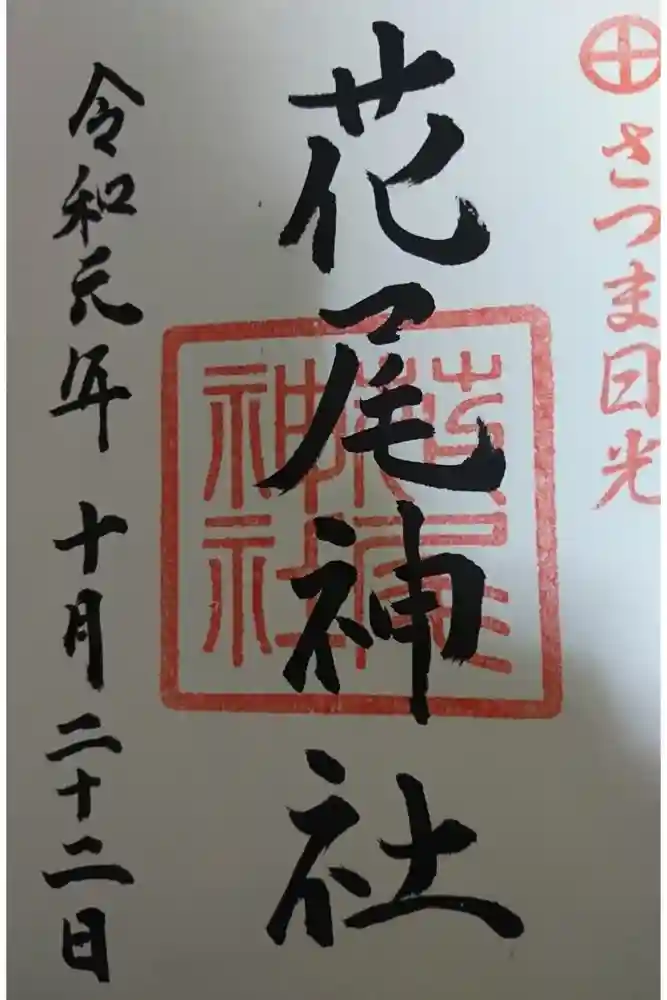 さつま日光
花尾神社
花尾神社
令和元年 十月二十二日